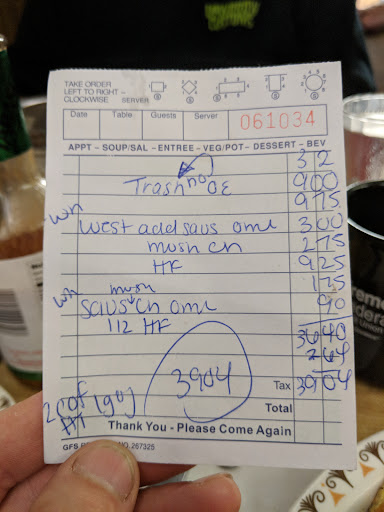 TAKE ORDER
LEFT TO RIGHT -
CLOCKWISE SERVER
Date Table Guests Server 061034
APPT - SOUP/SAL - ENTREE - VEG/POT - DESSERT - BEV
3 2
Trash no OE 9 00
9 75
wh West add saus oml 3 00
mush ch 2 75
HF 9 25
mush 1 75
wh saus ch oml 90
1/2 HF 36 40
2 64
3904 Tax 39 04
Total
2 cof (go)
Thank You - Please Come Again
GFS NO. 267325